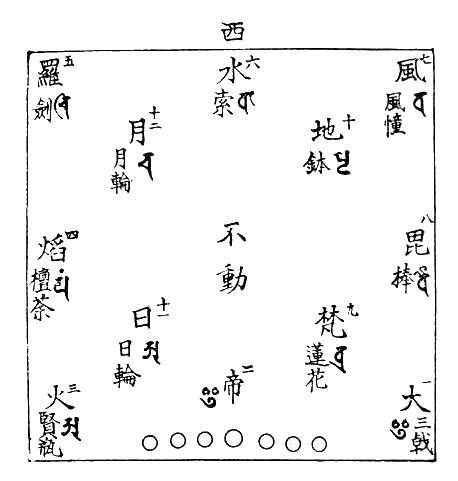 西
五
羅
劍
六
水
索
七
風
風幢
十二
月
月輪
十
地
鉢
四
焰
檀荼
不動
八
毘
棒
十一
日
日輪
九
梵
蓮花
三
火
賢瓶
二
帝
一
大
三戟